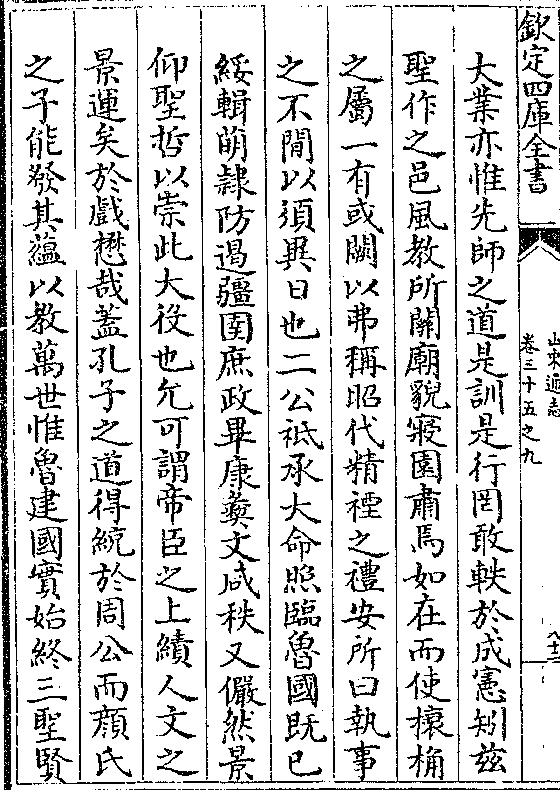 欽定四庫全書
山東通志
卷三十五之九
大業亦惟先師之道是訓是行罔敢軼於成憲矧兹
聖作之邑風教所關廟貌寢園肅焉如在而使榱桷
之屬一有或闕以弗稱昭代精禋之禮安所曰執事
之不閒以須異日也二公祗承大命照臨魯國既已
綏輯萌隷防遏疆圉庶政畢康彝文咸秩又儼然景
仰聖哲以崇此大役也允可謂帝臣之上績人文之
景運矣於戲懋哉蓋孔子之道得統於周公而顔氏
之子能發其蘊以教萬世惟魯建國實始終三聖賢